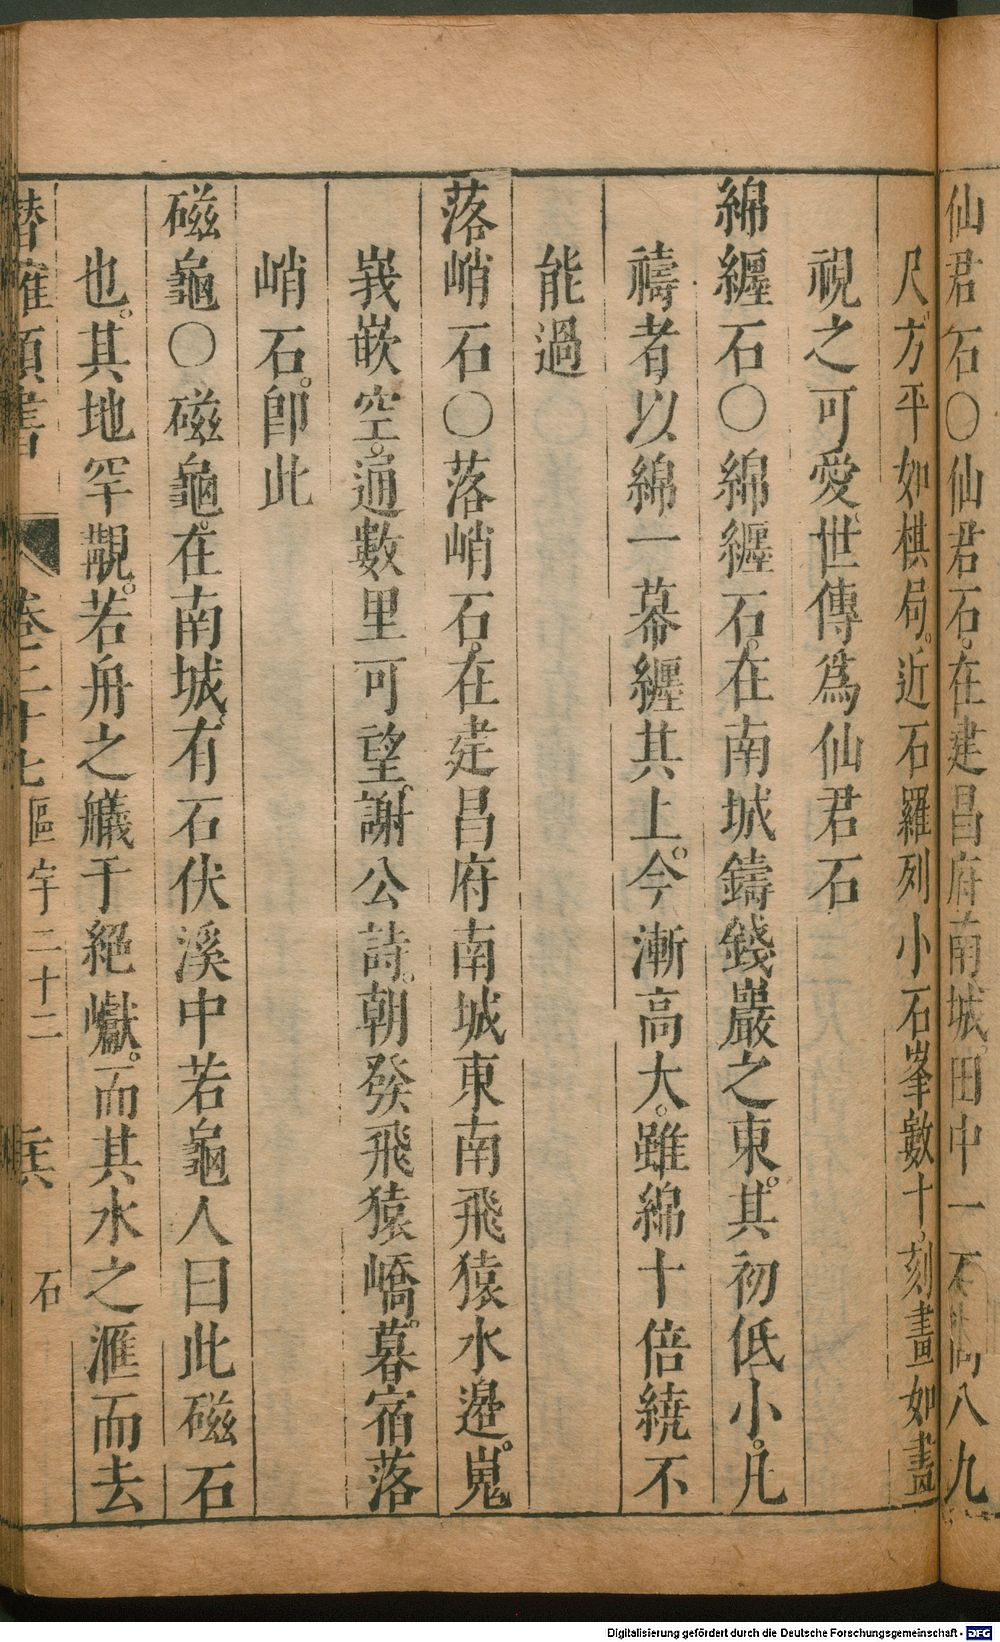 仙君石○仙君石。在建昌府南城。田中一石高八九
尺。方平如棋局。近石羅列小石峯數十。刻畫如畫
視之可愛。世傳為仙君石
綿纏石○綿纏石。在南城鑄錢巖之東。其初低小。凡
禱者以綿一幕纏其上。今漸高大。雖綿十倍繞不
能過
落峭石○落峭石。在建昌府南城東南飛猿水邊。嵬
峩嵌空。通數里可望。謝公詩。朝發飛猿嶠。暮宿落
峭石。卽此
磁龜○磁龜。在南城。有石伏溪中若龜人曰此磁石
也。其地罕觀。若舟之艤于絕巘。而其水之滙而去
潛確類書 卷二十七 區宇二十二 石
Digitalisierung gefördert durch die Deutsche Forschungsgemeinschaft - DFG